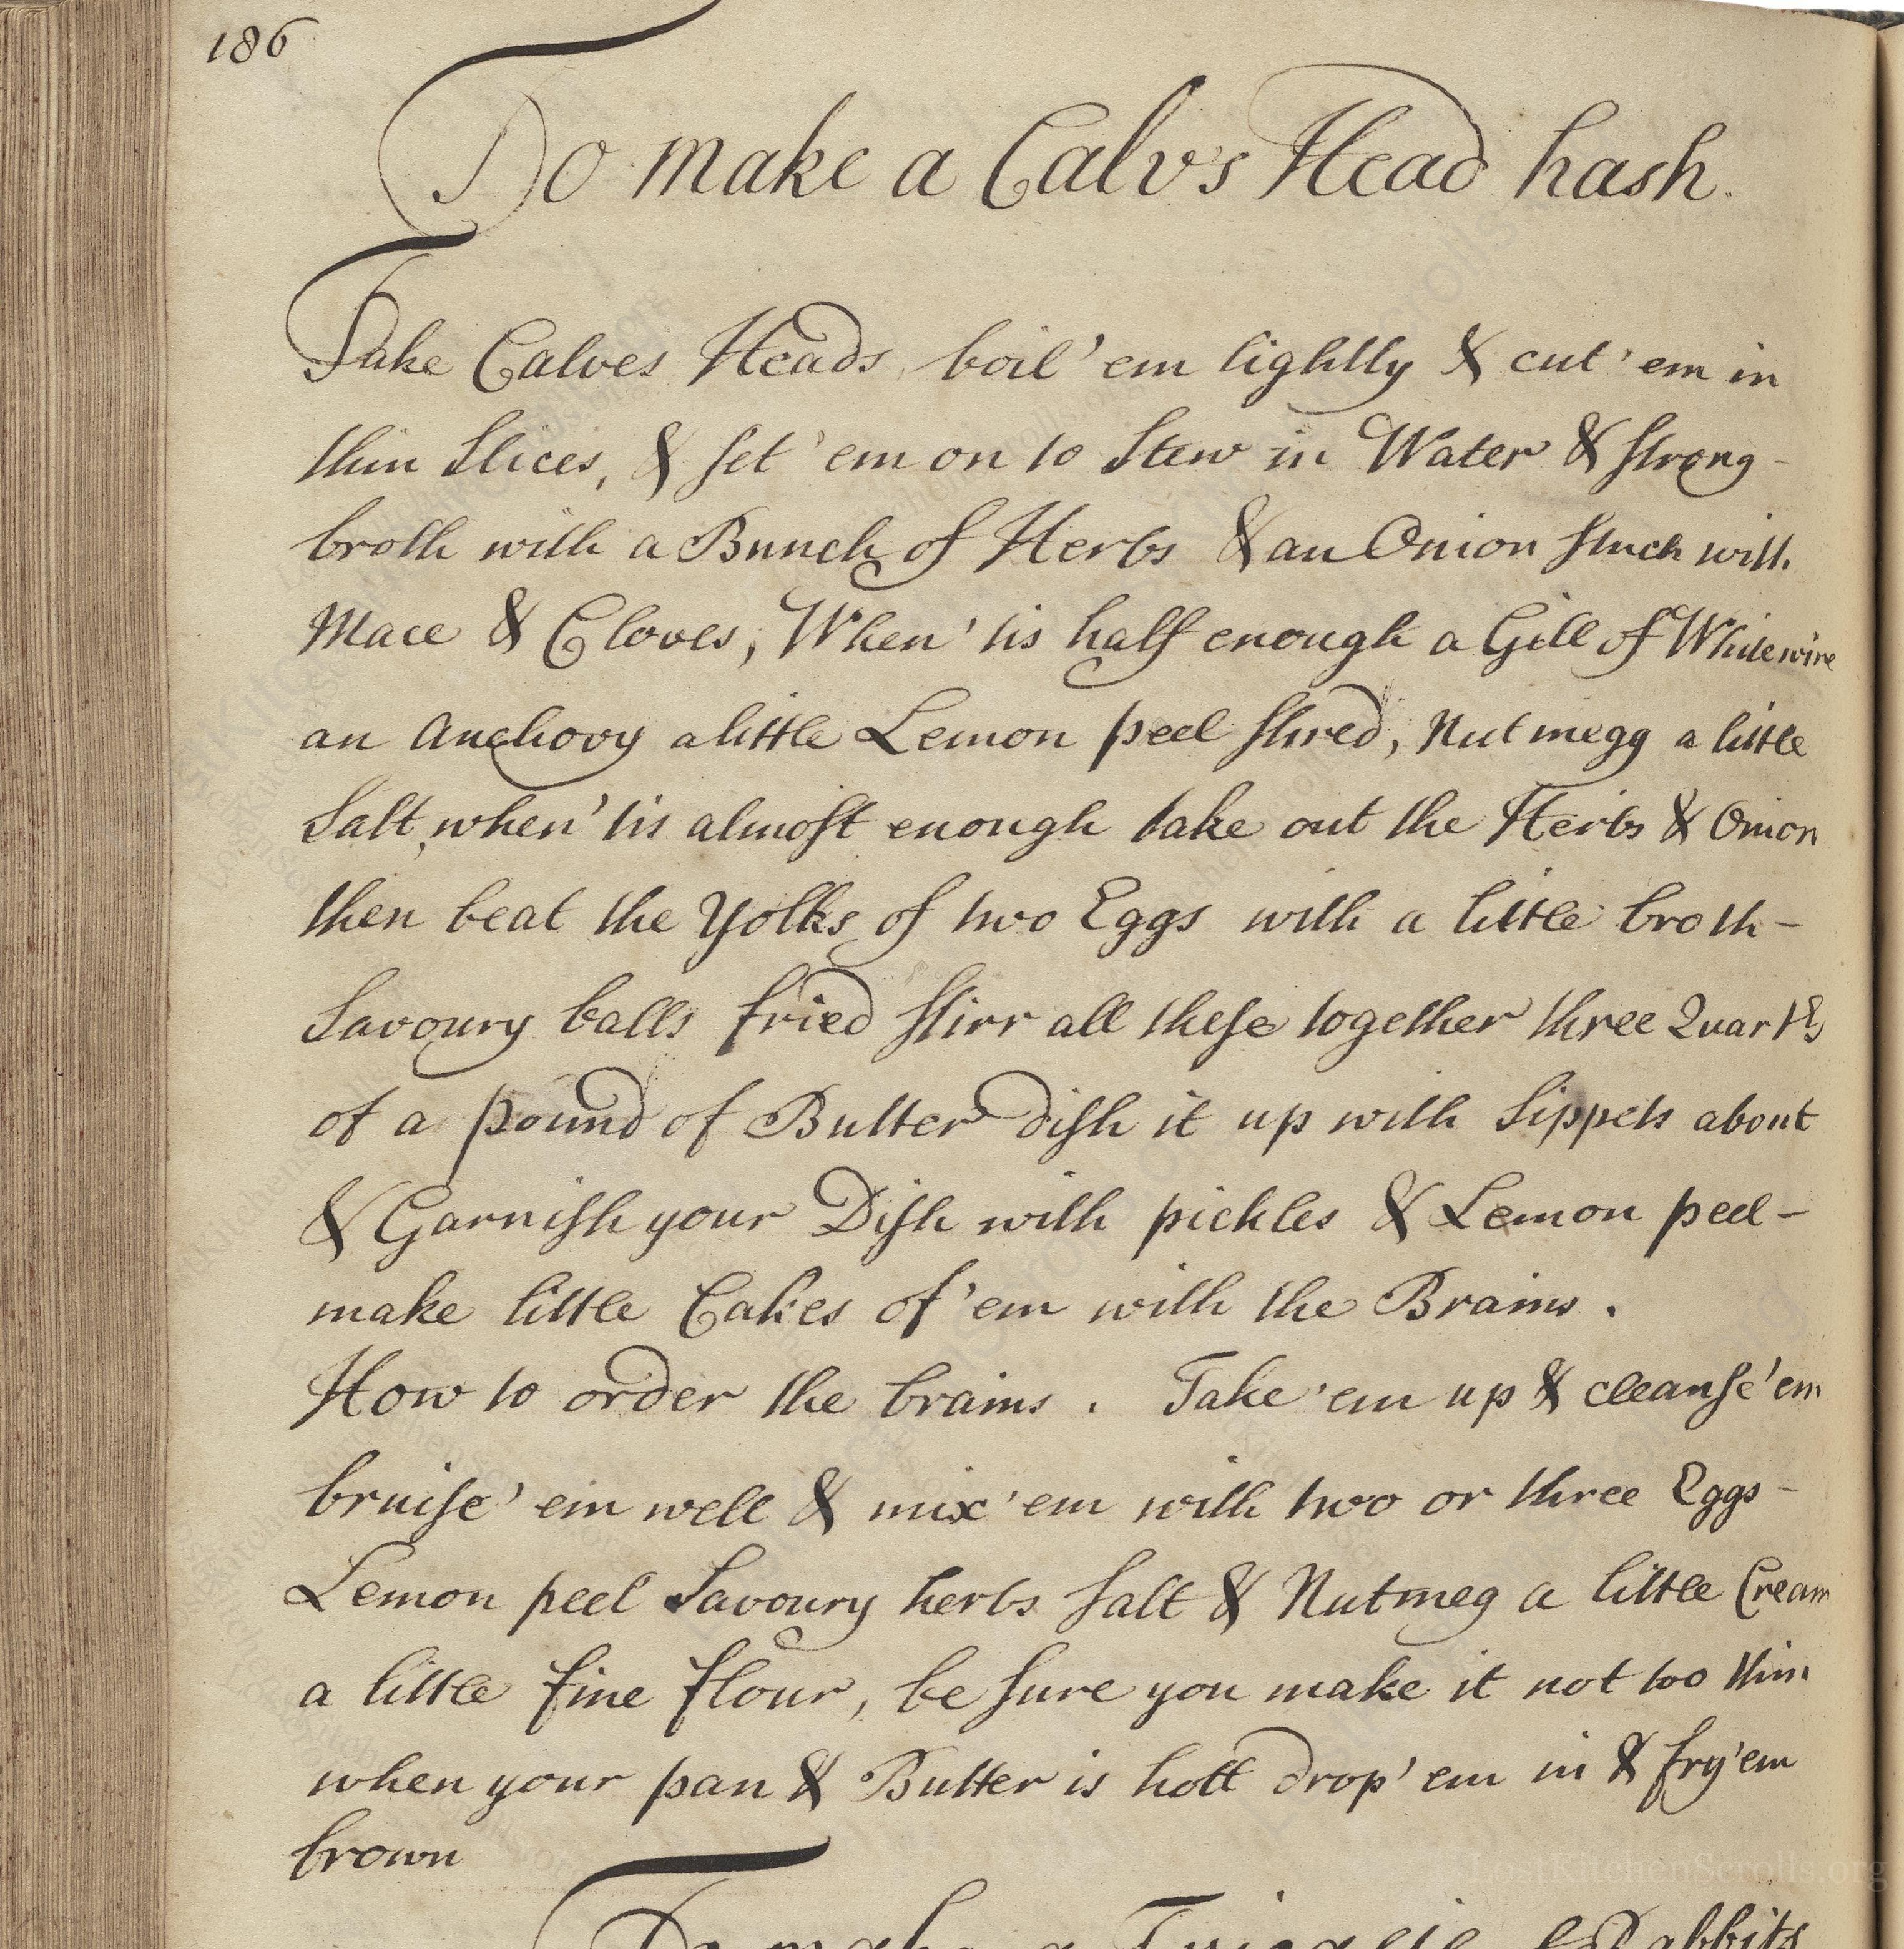 186
To make a Calv's Head hash.
Take Calves Heads boil 'em lightly & cut 'em in
thin Slices, & set 'em on to Stew in Water & strong-
broth with a Bunch of Herbs & an Onion stuck with
Mace & Cloves, When 'tis half enough a Gill of Whitewine
an Anchovy a little Lemon peel shred, Nutmegg a little
Salt, when 'tis almost enough take out the Herbs & Onion
then beat the Yolks of two Eggs with a little broth-
Savoury balls fried stirr all these together three Quartrs
of a pound of Butter dish it up with Sippets about
& Garnish your Dish with pickles & Lemon peel-
make little Cakes of 'em with the Brains.
How to order the brains. Take 'em up & cleanse 'em
bruise 'em well & mix 'em with two or three Eggs-
Lemon peel Savoury herbs Salt & Nutmeg a little Cream
a little fine flour, be sure you make it not too thin
when your pan & Butter is hott drop 'em in & fry 'em
brown
To make a Fricasie of Rabbits
LostKitchenScrolls.org